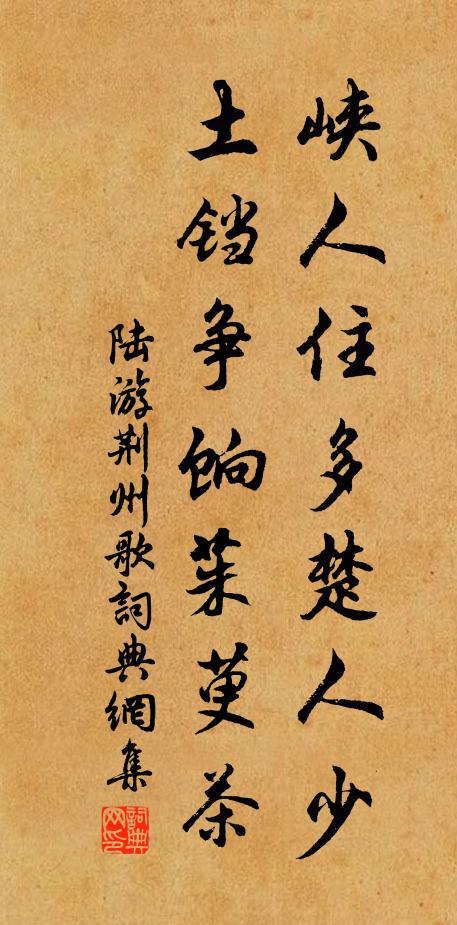 峡人住多楚人少
土铛争饷茱萸茶
陆游荆州歌詞典網集
詞典网印